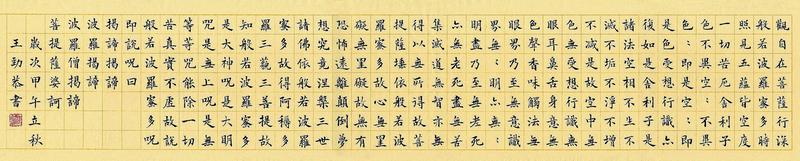 觀自在菩薩行深
般若波羅蜜多時
照見五蘊皆空度
一切苦厄舍利子
色不異空:不異
色:即是空:即
是色受想行識亦
復如是舍利子是
諸法空相不生不
滅不垢不淨不增
不減是故空中無
色無受想行識無
眼耳鼻舌身意無
色聲香味觸法無
眼界乃至無意識
界無:明亦無:
明盡乃至無老死
亦無老死盡無苦
集滅道無智亦無
得以無所得故菩
提薩埵依般若波
羅蜜多故心無罣
礙無罣礙故無有
恐怖遠離顛倒夢
想究竟涅槃三世
諸佛依般若波羅
蜜多故得阿耨多
羅三藐三菩提故
知般若波羅蜜多
是大神呪是大明
呪是無上呪是無
等等呪能除一切
苦真實不虛故說
般若波羅蜜多呪
即說呪曰
揭諦揭諦
波羅揭諦
波羅僧揭諦
菩提薩婆訶
歲次甲午立秋
王勁恭書